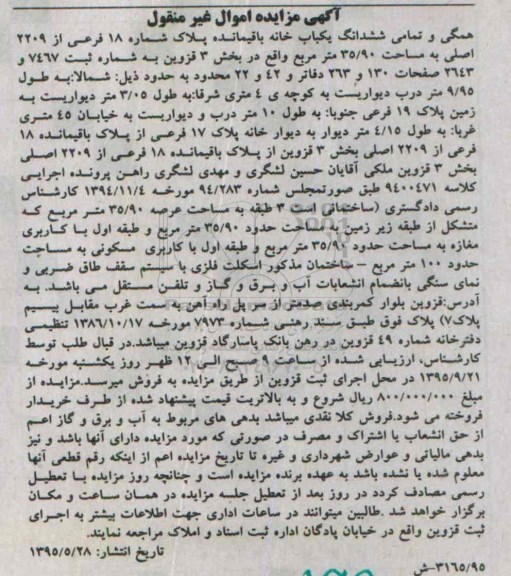 آگهی مزایده اموال غیر منقول
همگی و تمامی ششدانگ یکباب خانه باقیمانده پلاک شماره ۱۸ فرعی از ۲۲۰۹
اصلی به مساحت ۳۵/۹۰ متر مربع واقع در بخش ۳ قزوین به شماره ثبت ۷۴۶۷ و
۲۶۴۳ صفحات ۱۳۰ و ۲۶۳ دفاتر و ۴۲ و ۲۲ محدود به حدود ذیل: شمالا:به طول
۹/۹۵ متر درب دیواریست به کوچه ی ۴ متری شرقا:به طول ۳/۰۵ متر دیواریست به
زمین پلاک ۱۹ فرعی جنوبا: به طول ۱۰ متر درب و دیواریست به خیابان ۴۵ متری
غربا: به طول ۴/۱۵ متر دیوار به دیوار خانه پلاک ۱۷ فرعی از پلاک باقیمانده ۱۸
فرعی از ۲۲۰۹ اصلی بخش ۳ قزوین از پلاک باقیمانده ۱۸ فرعی از ۲۲۰۹ اصلی
بخش ۳ قزوین ملکی آقایان حسین لشگری و مهدی لشگری راهن پرونده اجرایی
کلاسه ۹۴۰۰۴۷۱ طبق صورتمجلس شماره ۹۴/۲۸۳ مورخه ۱۳۹۴/۱۱/۴ کارشناس
رسمی دادگستری (ساختمانی است ۳ طبقه به مساحت عرصه ۳۵/۹۰ متر مربع که
متشکل از طبقه زیر زمین به مساحت حدود ۳۵/۹۰ متر مربع و طبقه اول با کاربری
مغازه به مساحت حدود ۳۵/۹۰ متر مربع و طبقه اول با کاربری مسکونی به مساحت
حدود ۱۰۰ متر مربع – ساختمان مذکور اسکلت فلزی با سیستم سقف طاق ضربی و
نمای سنگی بانضمام انشعابات آب و برق و گاز و تلفن مستقل می باشد. به
آدرس:قزوین بلوار کمربندی صدمتر از سر پل راه آهن به سمت غرب مقابل پیسیم
پلاک۷) پلاک فوق طبق سند رهنی شماره ۷۹۷۳ مورخه ۱۳۸۶/۱۰/۱۷ تنظیمی
دفترخانه شماره ۴۹ قزوین در رهن بانک پاسارگاد قزوین میباشد.در قبال طلب توسط
کارشناس، ارزیابی شده از ساعت ۹ صبح الی ۱۲ ظهر روز یکشنبه مورخه
۱۳۹۵/۹/۲۱ در محل اجرای ثبت قزوین از طریق مزایده به فروش میرسد.مزایده از
مبلغ ۸۰۰/۰۰۰/۰۰۰ ریال شروع و به بالاتریت قیمت پیشنهاد شده از طرف خریدار
فروخته می شود.فروش کلا نقدی میباشد بدهی های مربوط به آب و برق و گاز اعم
از حق انشعاب یا اشتراک و مصرف در صورتی که مورد مزایده دارای آنها باشد و نیز
بدهی مالیاتی و عوارض شهرداری و غیره تا تاریخ مزایده اعم از اینکه رقم قطعی آنها
معلوم شده یا نشده باشد به عهده برنده مزایده است و چنانچه روز مزایده با تعطیل
رسمی مصادف گردد در روز بعد از تعطیل جلسه مزایده در همان ساعت و مکان
برگزار خواهد شد .طالبین میتوانند در ساعات اداری جهت اطلاعات بیشتر به اجرای
ثبت قزوین واقع در خیابان پادگان اداره ثبت اسناد و املاک مراجعه نمایند.
تاریخ انتشار: ۱۳۹۵/۵/۲۸
۳۱۶۵/۹۵-ش